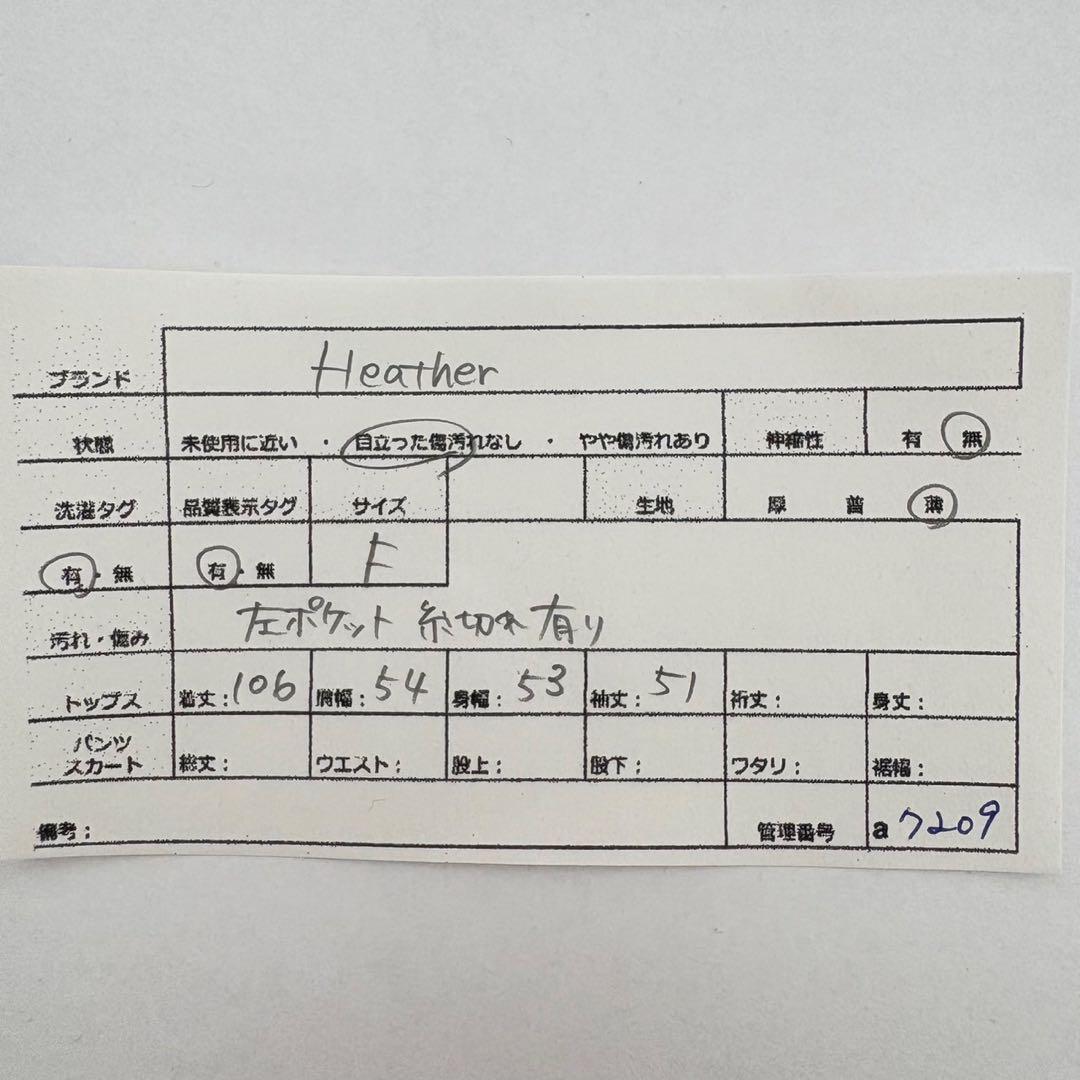 ブランド Heather
状態 未使用に近い ・ 目立った傷汚れなし ・ やや傷汚れあり 伸縮性 有 無
洗濯タグ 品質表示タグ サイズ 生地 厚 普 薄
有・無 有・無 F
汚れ・傷み 左ポケット 糸切れ有り
トップス 着丈:106 肩幅:54 身幅:53 袖丈:51 裄丈: 身丈:
パンツ
スカート 総丈: ウエスト: 股上: 股下: ワタリ: 裾幅:
備考: 管理番号 a7209